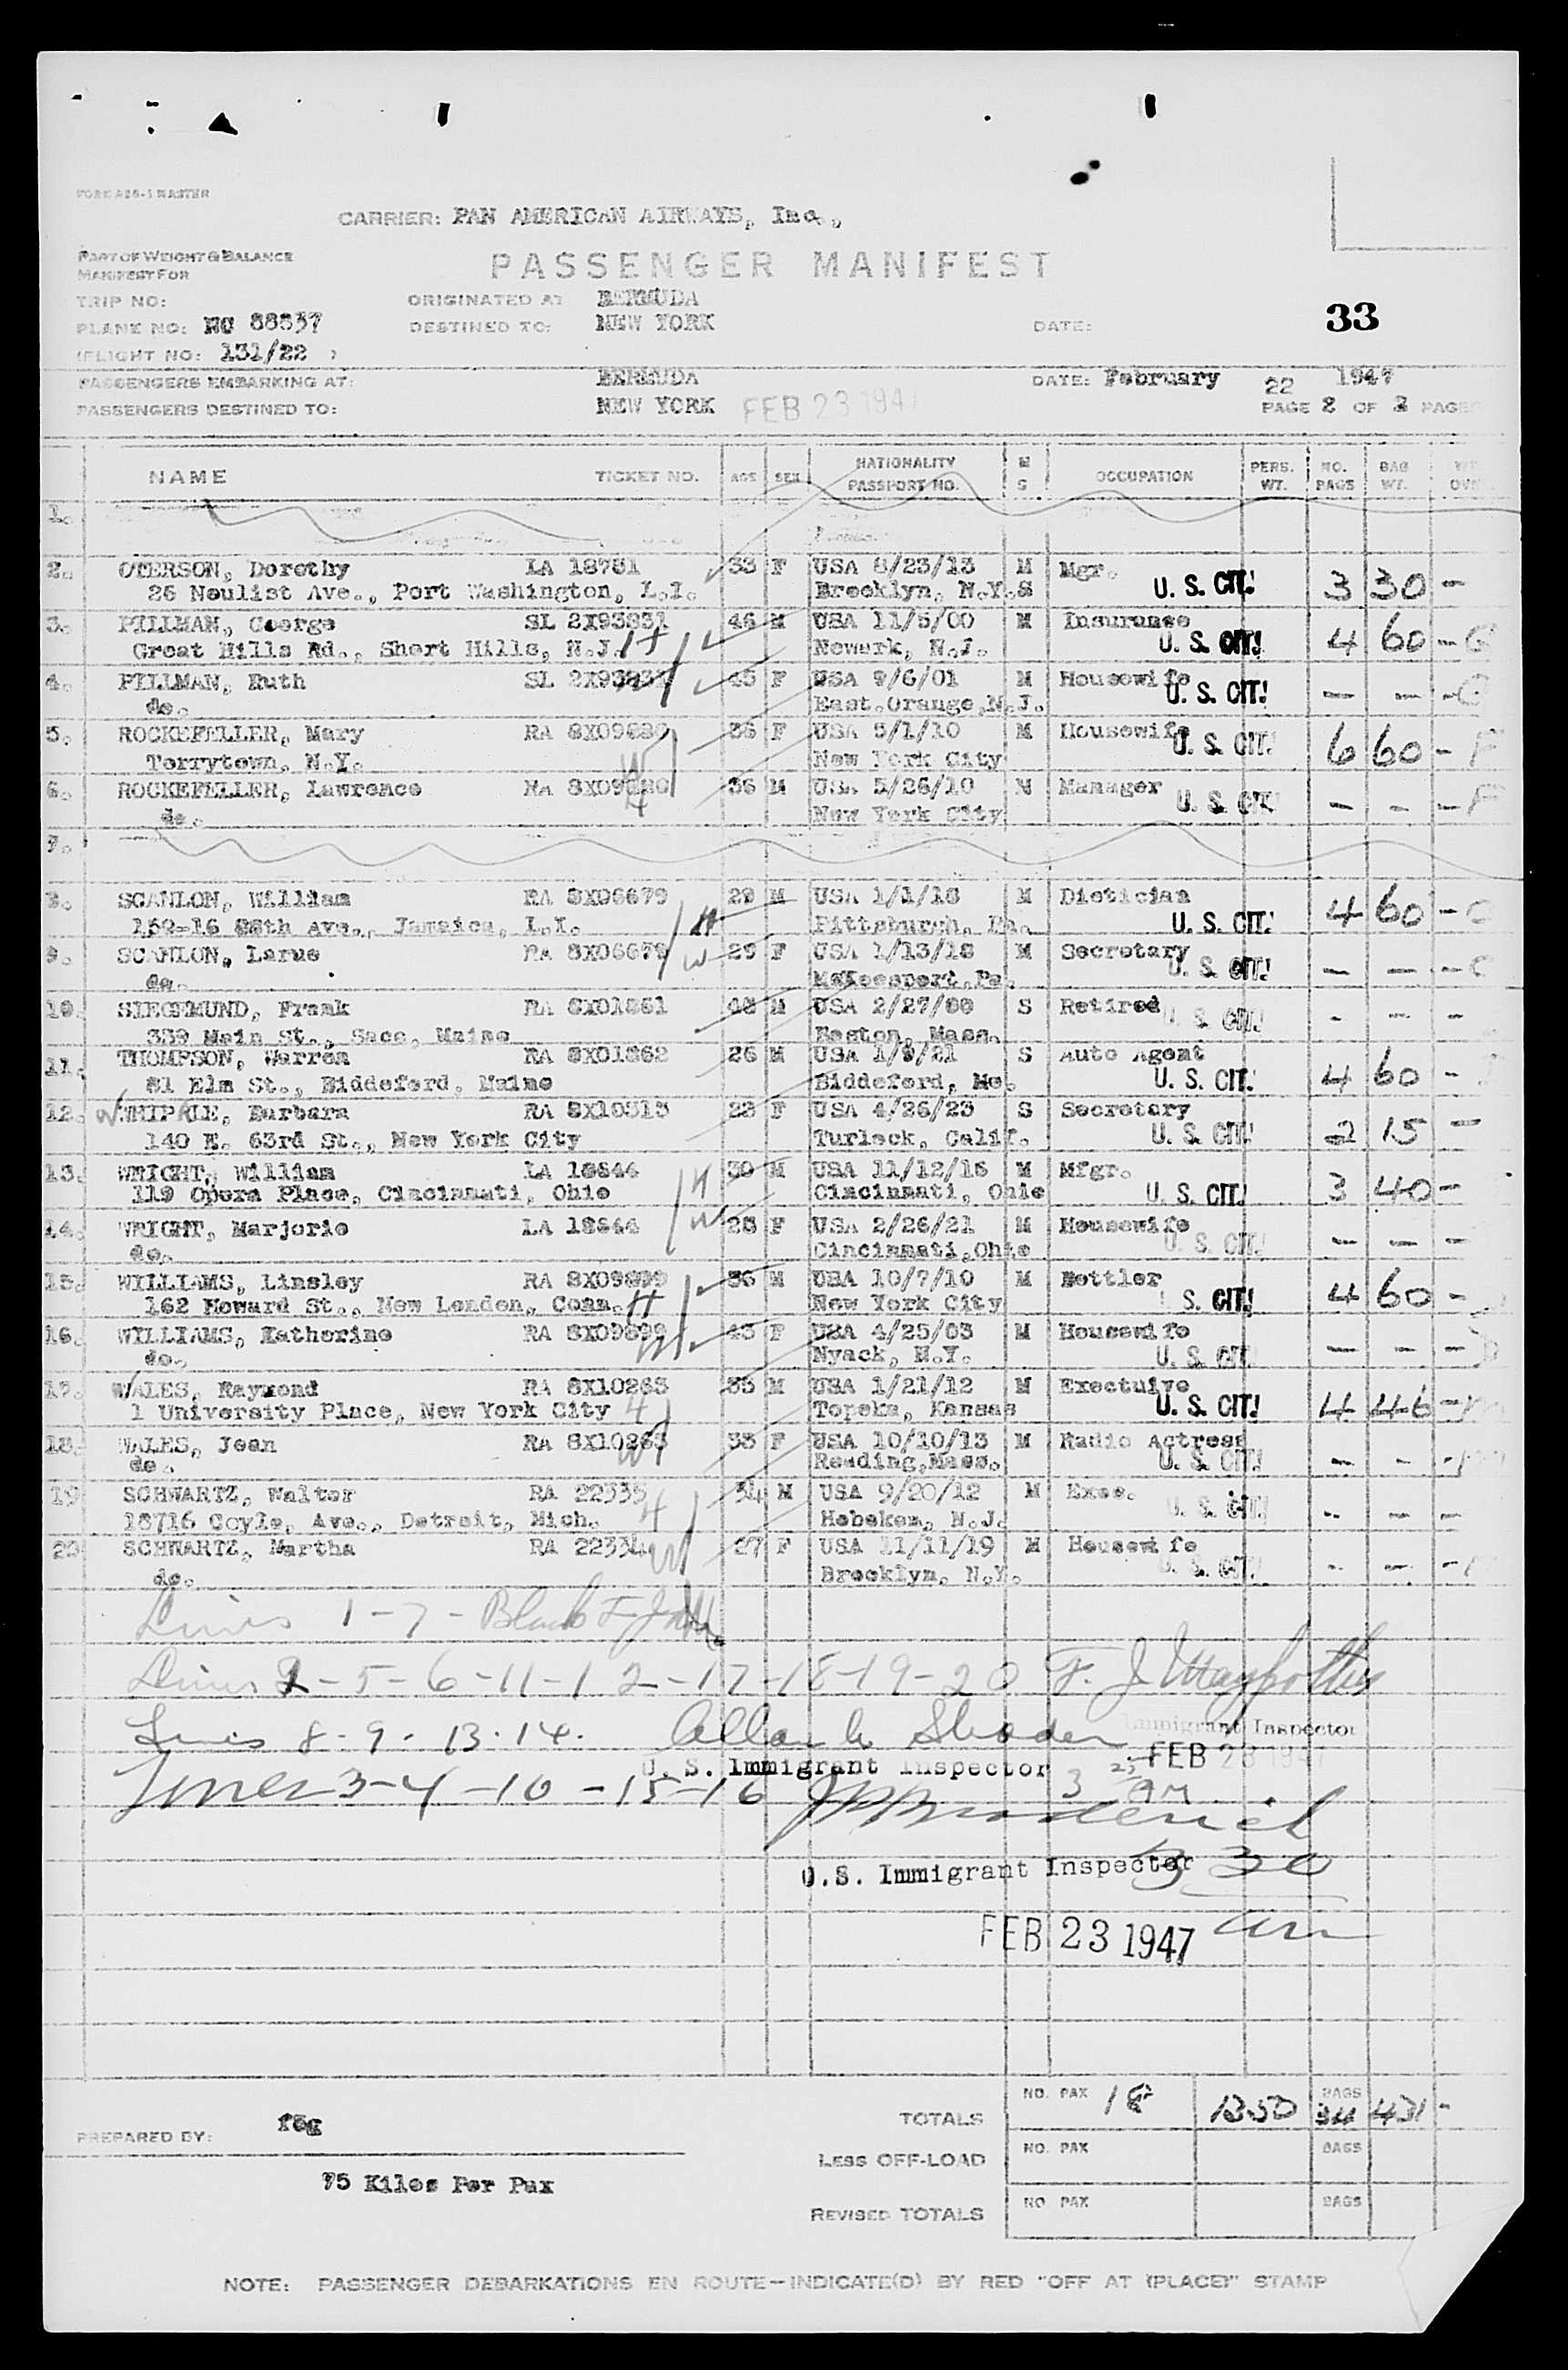 CARRIER: PAN AMERICAN AIRWAYS, Inc.,
PART OF WEIGHT & BALANCE
MANIFEST FOR
PASSENGER MANIFEST
TRIP NO:
ORIGINATED AT BERMUDA
PLANE NO: NC 88837
DESTINED TO: NEW YORK
DATE:
33
(FLIGHT NO: 131/22 )
PASSENGERS EMBARKING AT: BERMUDA DATE: February 22 1947
PASSENGERS DESTINED TO: NEW YORK FEB 23 1947 PAGE 2 OF 2 PAGES
NAME TICKET NO. AGE SEX NATIONALITY PASSPORT NO. M S OCCUPATION PERS. WT. NO. BAGS BAG WT.
1.
2. OTERSON, Dorothy LA 18751 33 F USA 8/23/13 M Mgr.
26 Neulist Ave., Port Washington, L.I. Brooklyn, N.Y. S U. S. CIT! 3 30 -
3. PILLMAN, George SL 2X93831 46 M USA 11/5/00 M Insurance
Great Hills Rd., Short Hills, N.J. H Newark, N.J. U. S. CIT! 4 60 -
4. PILLMAN, Ruth SL 45 F USA 9/6/01 M Housewife
do. East.Orange,N.J. U. S. CIT! - - -
5. ROCKEFELLER, Mary RA 36 F USA 5/1/10 M Housewife
Terrytown, N.Y. W New York City U. S. CIT! 6 60 - F
6. ROCKEFELLER, Lawrence RA 36 M USA 5/26/10 M Manager
do. H New York City U. S. CIT! - - - F
7.
8. SCANLON, William RA 8X06679 29 M USA 1/1/18 M Dietician
152-16 88th Ave., Jamaica, L.I. H Pittsburgh, Pa. U. S. CIT! 4 60 -
9. SCANLON, Larue RA 8X06679 29 F USA 1/13/18 M Secretary
do. W McKeesport,Pa. U. S. CIT! - - -
10. SIEGEMUND, Frank RA 8X01861 48 M USA 2/27/98 S Retired
339 Main St., Saco, Maine Boston, Mass. U. S. CIT! - - -
11. THOMPSON, Warren RA 8X01862 26 M USA 1/9/21 S Auto Agent
81 Elm St., Biddeford, Maine Biddeford, Me. U. S. CIT! 4 60 -
12. WHIPPLE, Barbara RA 8X10315 23 F USA 4/26/23 S Secretary
140 E. 63rd St., New York City Turlock, Calif. U. S. CIT! 2 15 -
13. WRIGHT, William LA 18644 30 M USA 11/12/16 M Mfgr.
119 Opera Place, Cincinnati, Ohio H Cincinnati, Ohio U. S. CIT! 3 40 -
14. WRIGHT, Marjorie LA 18644 25 F USA 2/26/21 M Housewife
do. W Cincinnati,Ohio U. S. CIT! - - -
15. WILLIAMS, Linsley RA 8X09899 36 M USA 10/7/10 M Settler
162 Howard St., New London, Conn. H New York City S. CIT! 4 60 -
16. WILLIAMS, Katherine RA 8X09899 43 F USA 4/25/03 M Housewife
do. W Nyack, N.Y. U. S. CIT - - -
17. WALES, Raymond RA 8X10263 35 M USA 1/21/12 M Exectuive
1 University Place, New York City H Topeka, Kansas U. S. CIT! 4 46 - m
18. WALES, Jean RA 8X10263 33 F USA 10/10/13 M Radio Actress
do. W Reading,Mass. U. S. CIT! - - - m
19 SCHWARTZ, Walter RA 22335 34 M USA 9/20/12 M Exec.
18716 Coyle, Ave., Detroit, Mich. H Hoboken, N.J. U. S. CIT! - - -
20 SCHWARTZ, Martha RA 22334 27 F USA 11/11/19 M Housewife
do. W Brooklyn, N.Y. U. S. CIT! - - -
Lines 1 - 7 - Blank
Lines 2 - 5 - 6 - 11 - 12 - 17 - 18 - 19 - 20 F. J.
Immigrant Inspector
Lines 8 - 9 - 13 - 14.
FEB 23 1947
U. S. Immigrant Inspector
3 25 AM
Lines 3 - 4 - 10 - 15 - 16 Broderick
U.S. Immigrant Inspector 3 30 am
FEB 23 1947
TOTALS NO. PAX 18 1350 BAGS 34 431 -
PREPARED BY: fsg
LESS OFF-LOAD NO. PAX BAGS
75 Kilos Per Pax
REVISED TOTALS NO PAX BAGS
NOTE: PASSENGER DEBARKATIONS EN ROUTE-INDICATE(D) BY RED "OFF AT (PLACE)" STAMP